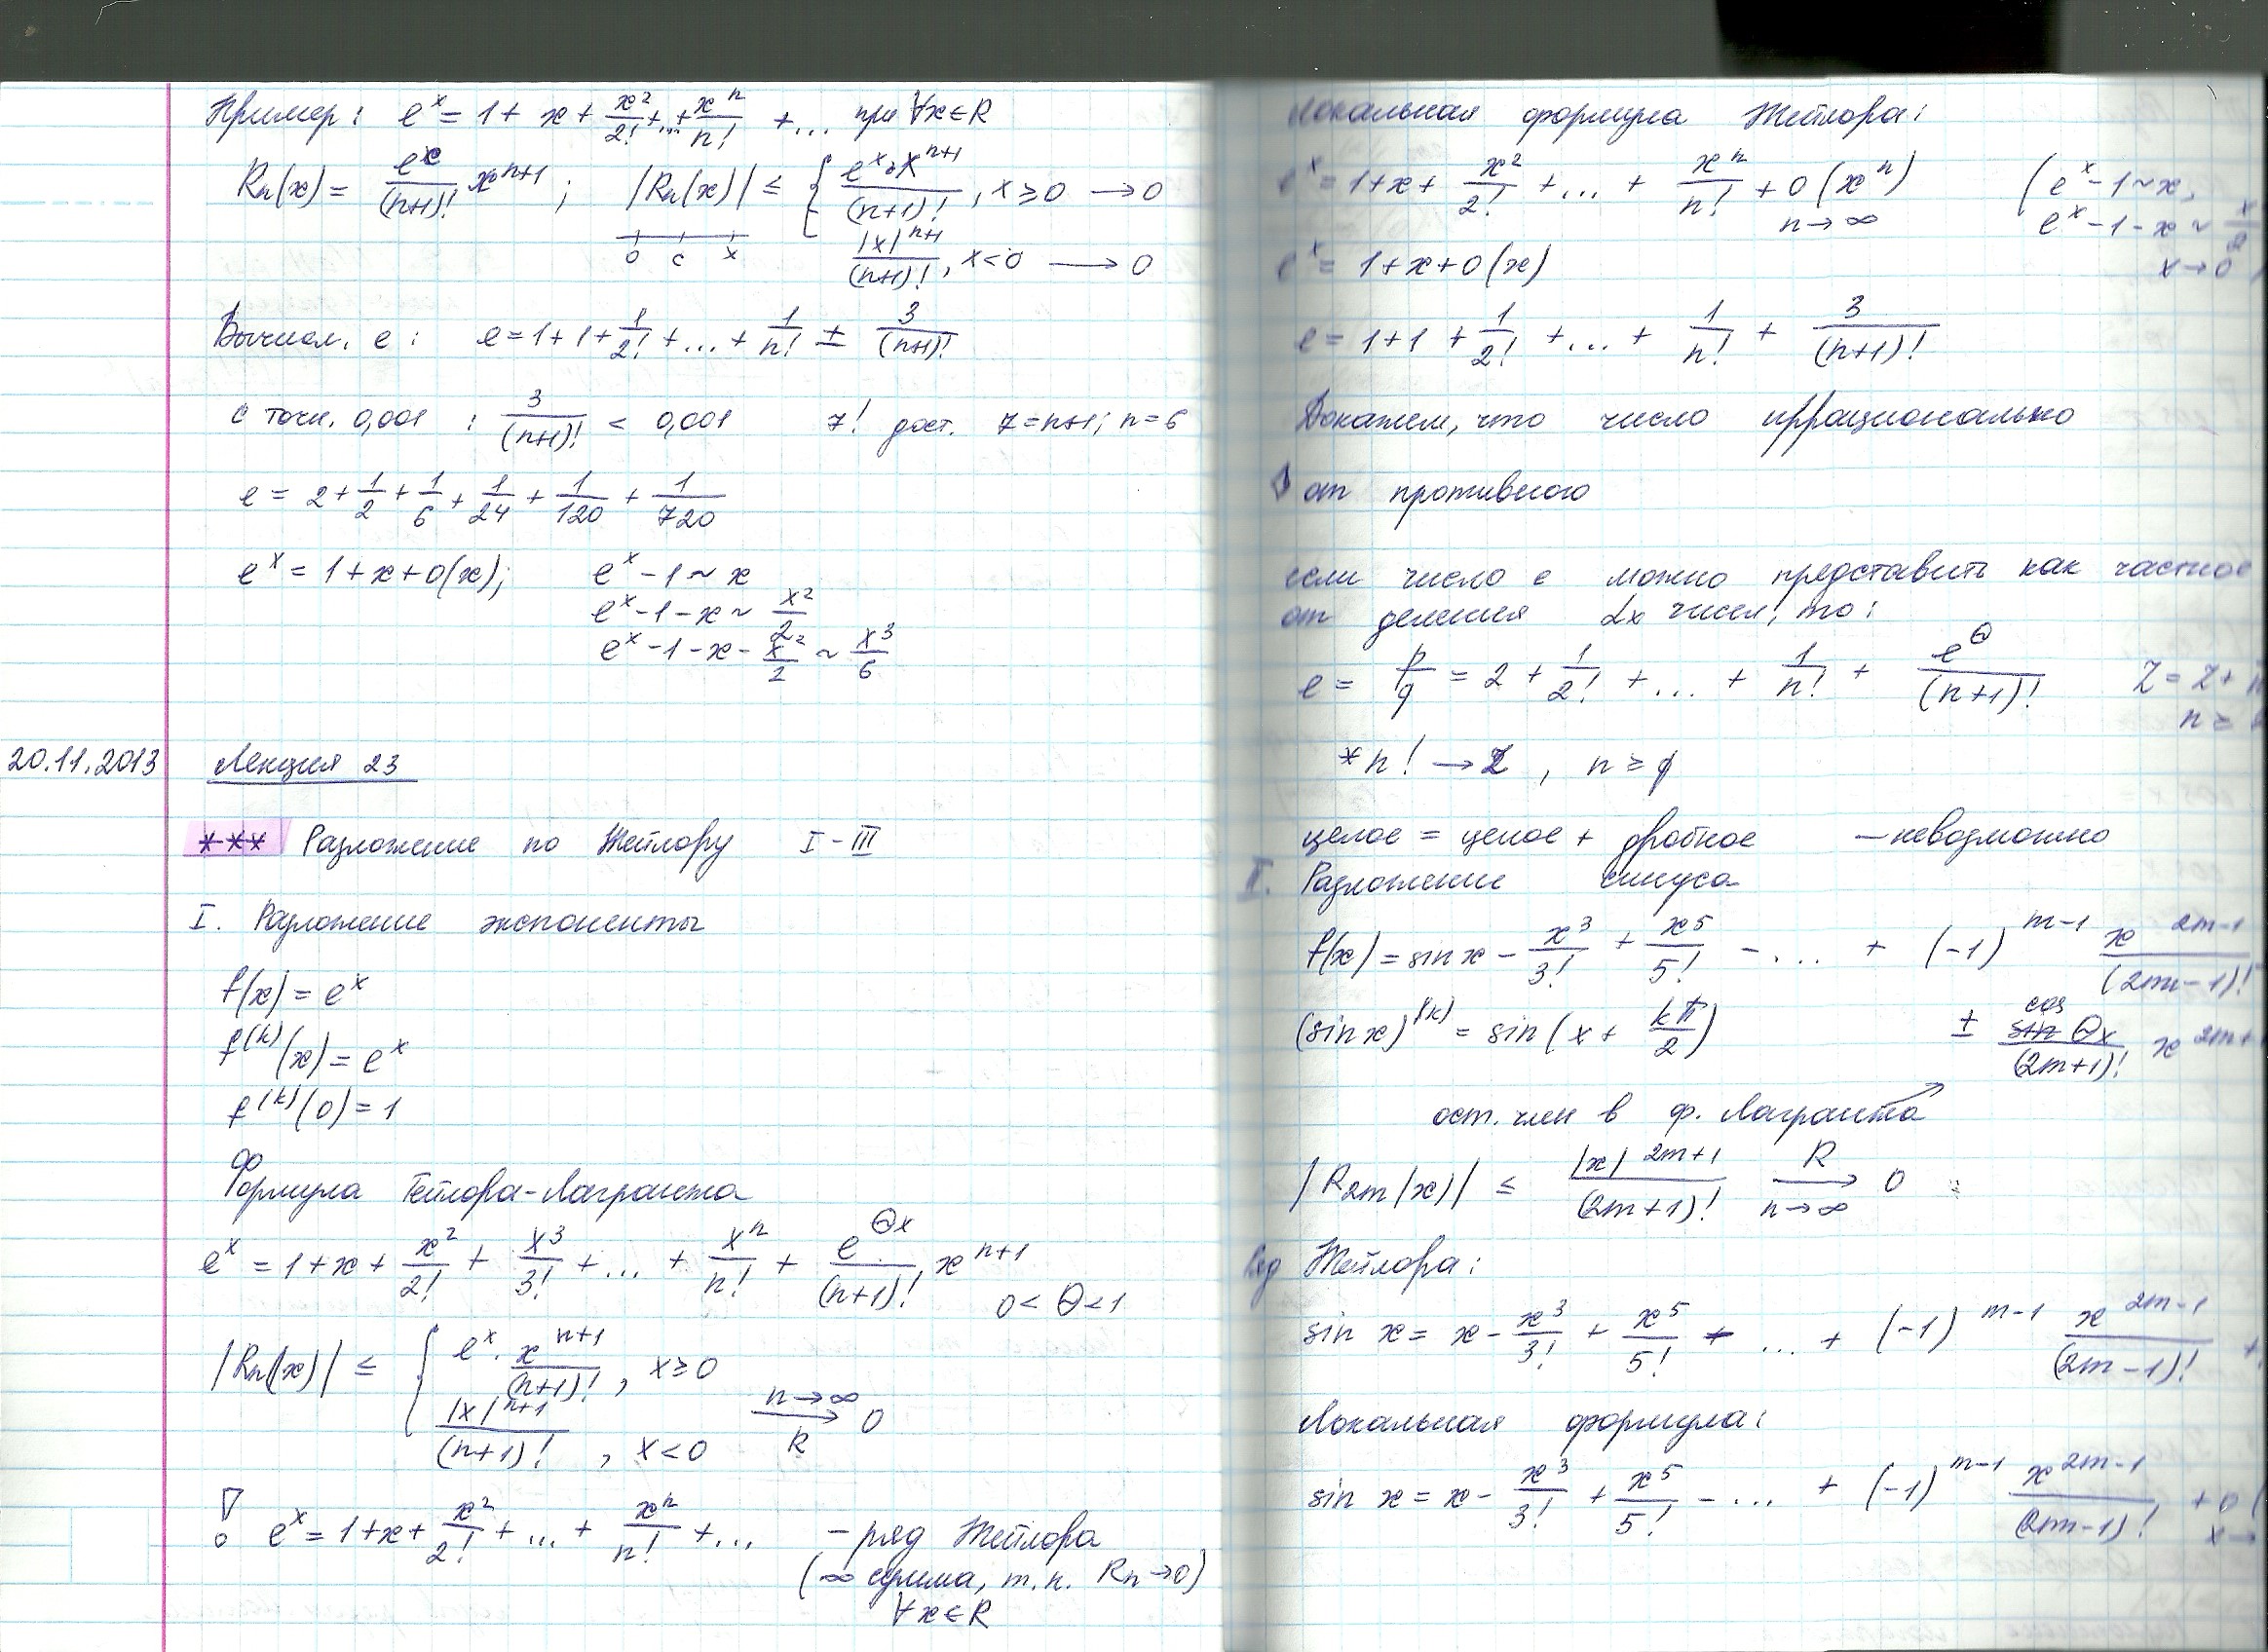 Пример: e^x = 1 + x + x^2/2! + ... + x^n/n! + ... при ∀x∈R
Rn(x) = e^c/(n+1)! x^(n+1); |Rn(x)| ≤ { e^x·x^(n+1)/(n+1)!, x ≥ 0 → 0
|x|^(n+1)/(n+1)!, x < 0 → 0
0 c x
Вычисл. e: e = 1 + 1 + 1/2! + ... + 1/n! ± 3/(n+1)!
с точн. 0,001 : 3/(n+1)! < 0,001 7! дост. 7 = n+1; n = 6
e = 2 + 1/2 + 1/6 + 1/24 + 1/120 + 1/720
e^x = 1 + x + o(x); e^x - 1 ~ x
e^x - 1 - x ~ x^2/2
e^x - 1 - x - x^2/2 ~ x^3/6
20.11.2013 Лекция 23
*** Разложение по Тейлору I - III
I. Разложение экспоненты
f(x) = e^x
f^(k)(x) = e^x
f^(k)(0) = 1
Формула Тейлора-Лагранжа
e^x = 1 + x + x^2/2! + x^3/3! + ... + x^n/n! + e^(Θx)/(n+1)! x^(n+1)
0 < Θ < 1
|Rn(x)| ≤ { e^x · x^(n+1)/(n+1)!, x ≥ 0
|x|^(n+1)/(n+1)!, x < 0 n→∞ → 0 R
! e^x = 1 + x + x^2/2! + ... + x^n/n! + ... - ряд Тейлора
(∞ сумма, т.к. Rn → 0)
∀x∈R
Локальная формула Тейлора:
e^x = 1 + x + x^2/2! + ... + x^n/n! + o(x^n) (e^x - 1 ~ x,
n → ∞ e^x - 1 - x ~ x^2/2
e^x = 1 + x + o(x) x → 0
e = 1 + 1 + 1/2! + ... + 1/n! + 3/(n+1)!
Докажем, что число иррационально
от противного
если число e можно представить как частное
от деления 2х чисел, то:
e = p/q = 2 + 1/2! + ... + 1/n! + e^Θ/(n+1)! Z = Z +
n ≥
* n! → Z, n ≥ q
целое = целое + дробное - невозможно
II. Разложение синуса
f(x) = sin x - x^3/3! + x^5/5! - ... + (-1)^(m-1) x^(2m-1)/(2m-1)!
(sin x)^(k) = sin(x + kπ/2) ± cos Θx/(2m+1)! x^(2m+
ост. член в ф. Лагранжа
|R2m(x)| ≤ |x|^(2m+1)/(2m+1)! R → n→∞ 0
Ряд Тейлора:
sin x = x - x^3/3! + x^5/5! - ... + (-1)^(m-1) x^(2m-1)/(2m-1)! +
Локальная формула:
sin x = x - x^3/3! + x^5/5! - ... + (-1)^(m-1) x^(2m-1)/(2m-1)! + o(
x →